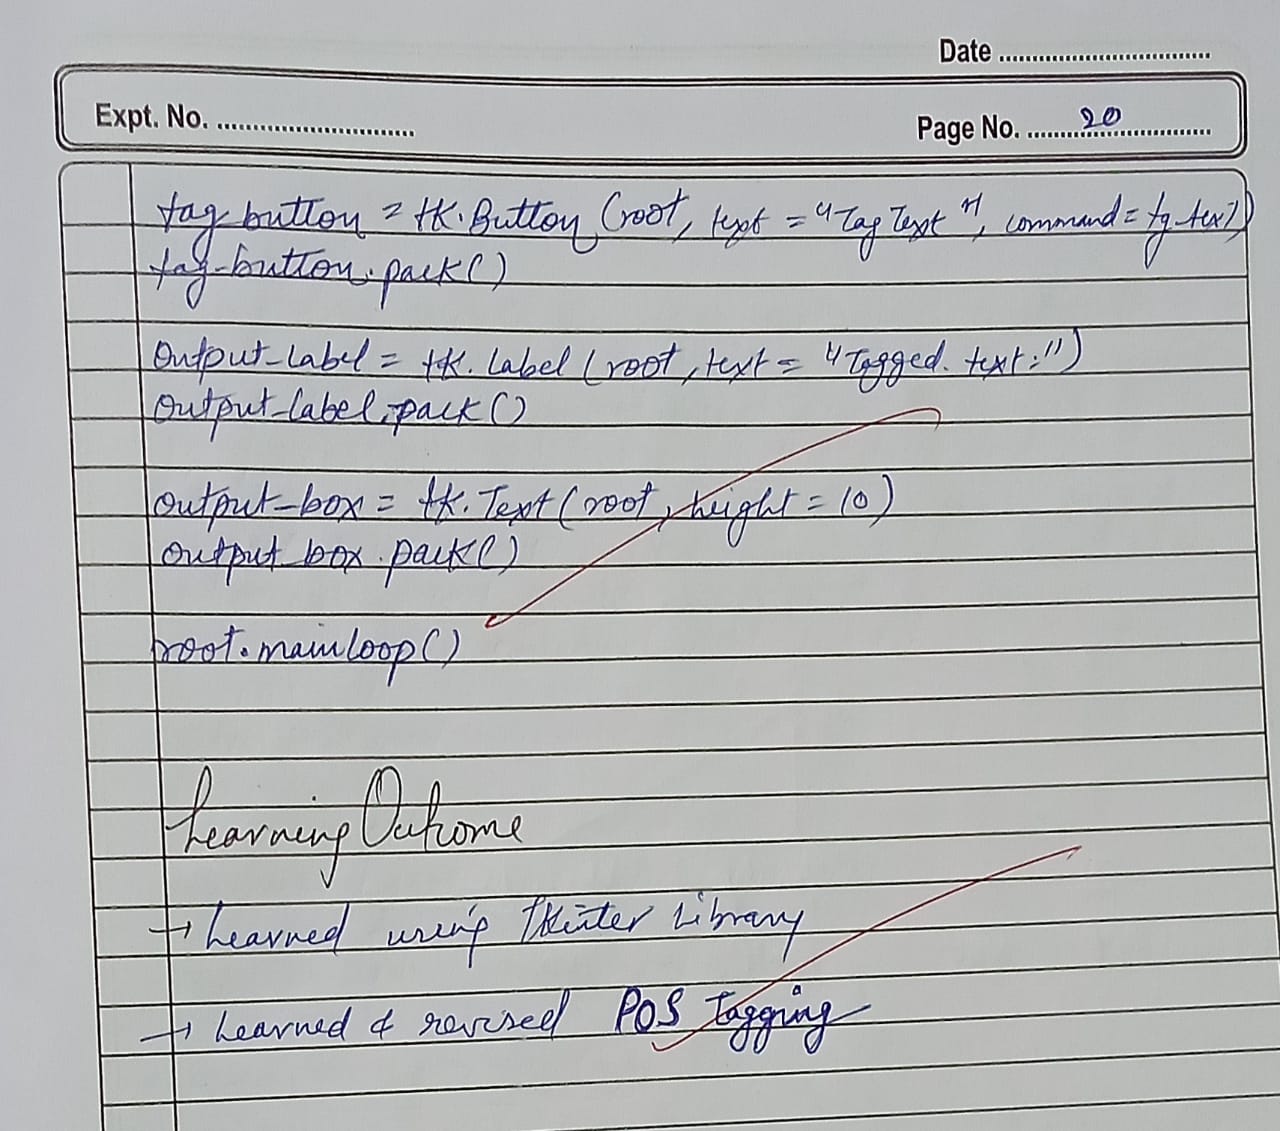 Date
Expt. No.
Page No. 20
tag-button = tk.Button (root, text = "Tag Text", command = tg-text)
tag-button.pack()
Output-Label = tk. Label (root, text = "Tagged. text:")
Output-label.pack()
output-box = tk. Text (root, height = 10)
output box .pack()
root.mainloop()
Learning Outcome
→ Learned using Tkinter Library
→ Learned & revised POS Tagging